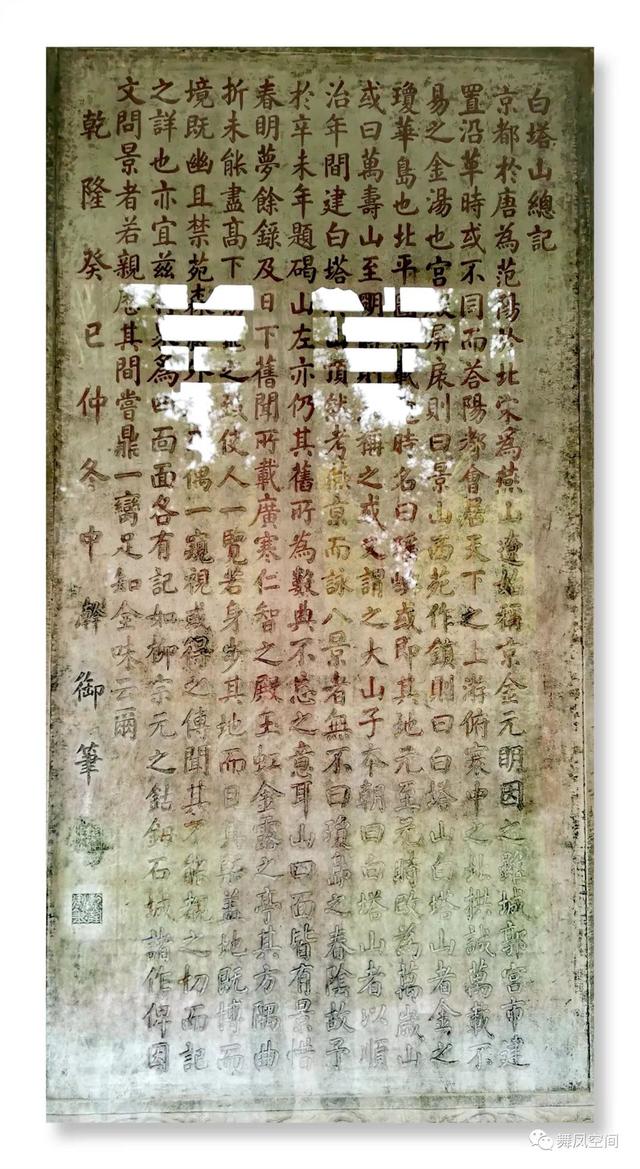 白塔山總記
京都於唐為范陽於北宋為燕山遼始稱京金元明因之雖城郭宮市建
置沿革時或不同而荅陽都會居天下之上游俯寰中之北拱誠萬載不
易之金湯也宮殿屏扆則曰景山西苑作鎮則曰白塔山白塔山者金之
瓊華島也北平圖載時名曰瑤嶼或即其地元至元時改為萬歲山
或曰萬壽山至明時則稱之或又謂之大山子本朝曰白塔山者以順
治年間建白塔於山頂然考燕京而詠八景者無不曰瓊島之春陰故予
於辛未年題碣山左亦仍其舊所為數典不忘之意耳山四面皆有景惜
春明夢餘錄及日下舊聞所載廣寒仁智之殿玉虹金露之亭其方隅曲
折未能盡高下之致使人一覽若身步其地而目其槩盖地既博而
境既幽且禁苑森外偶一窺視或得之傳聞其不能親之切而記
之詳也亦宜兹為四面面各有記如柳宗元之鈷鉧石城諸作俾因
文問景者若親歷其間嘗鼎一臠足知全味云爾
乾隆癸巳仲冬中澣御筆
舞凤空间